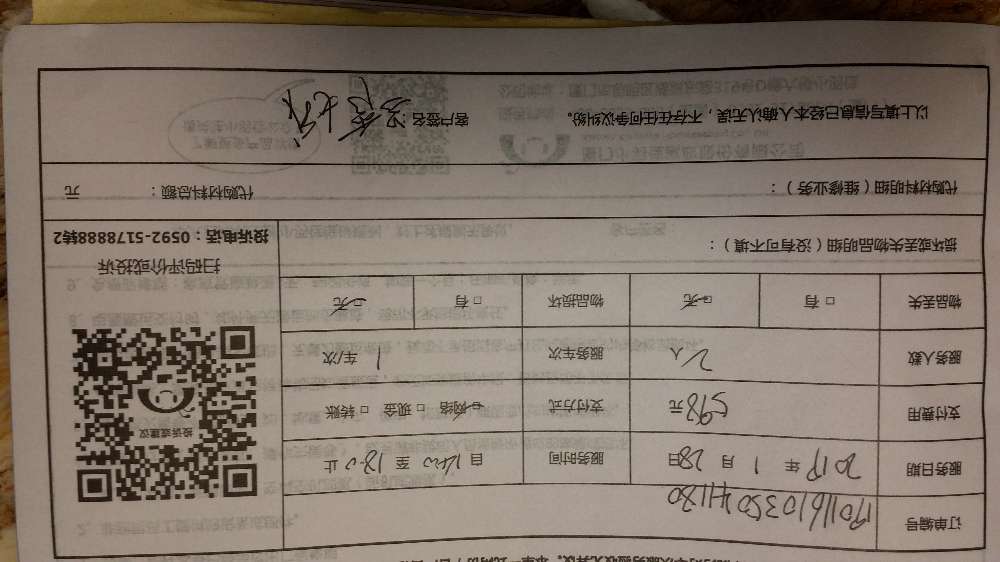 订单编号
服务日期 2019 年 1 月 28 日 服务时间 自 14:00 至 18:00 止
支付费用 598 元 支付方式 网络 □ 现金 □ 转账
服务人数 2 人 服务车次 1 车/次
物品丢失 □ 有 □ 无 物品损坏 □ 有 □ 无
投诉或建议
扫码评价或投诉
投诉电话：0592-5178888转2
损坏或丢失物品明细（没有可不填）：
代购材料明细（维修业务）： 代购材料总额： 元
以上填写信息已经本人确认无误，不存在任何争议纠纷。 客户签名：